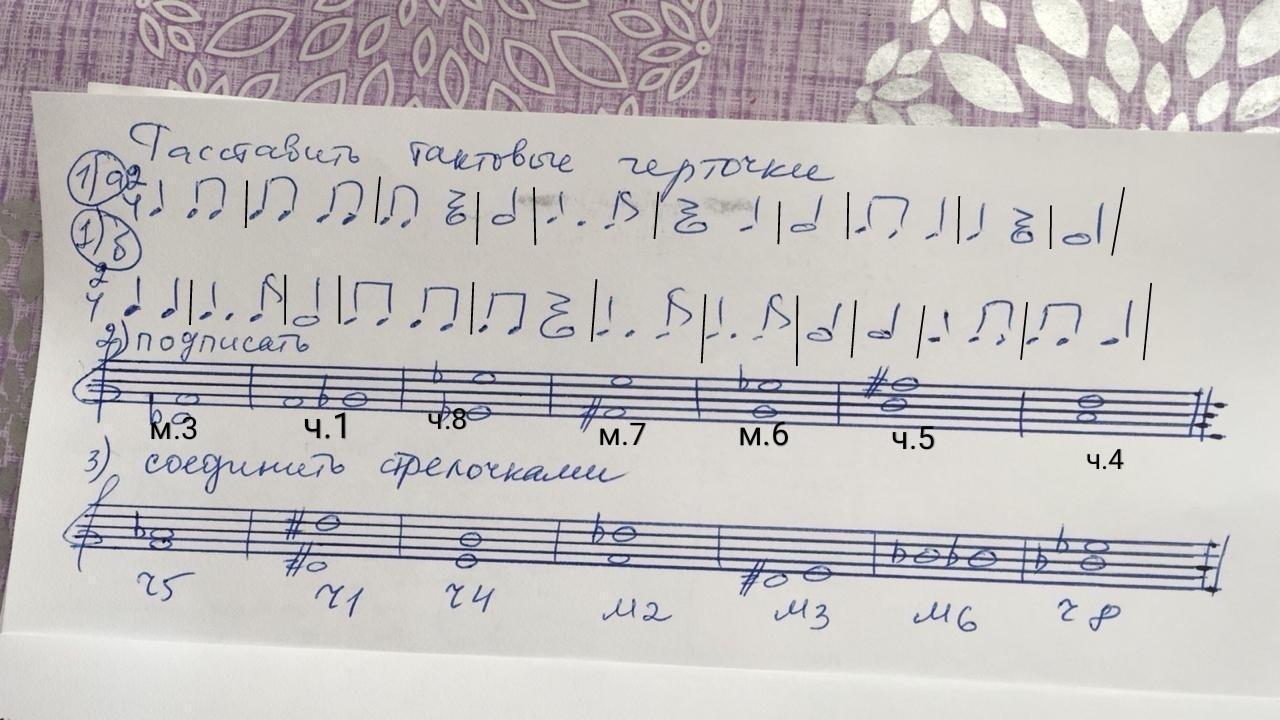 Расставить тактовые черточки
1) а 2 4
1) б
2 4
2) подписать
м.3 ч.1 ч.8 м.7 м.6 ч.5 ч.4
3) соединить стрелочками
ч5 ч1 ч4 м2 м3 м6 ч8